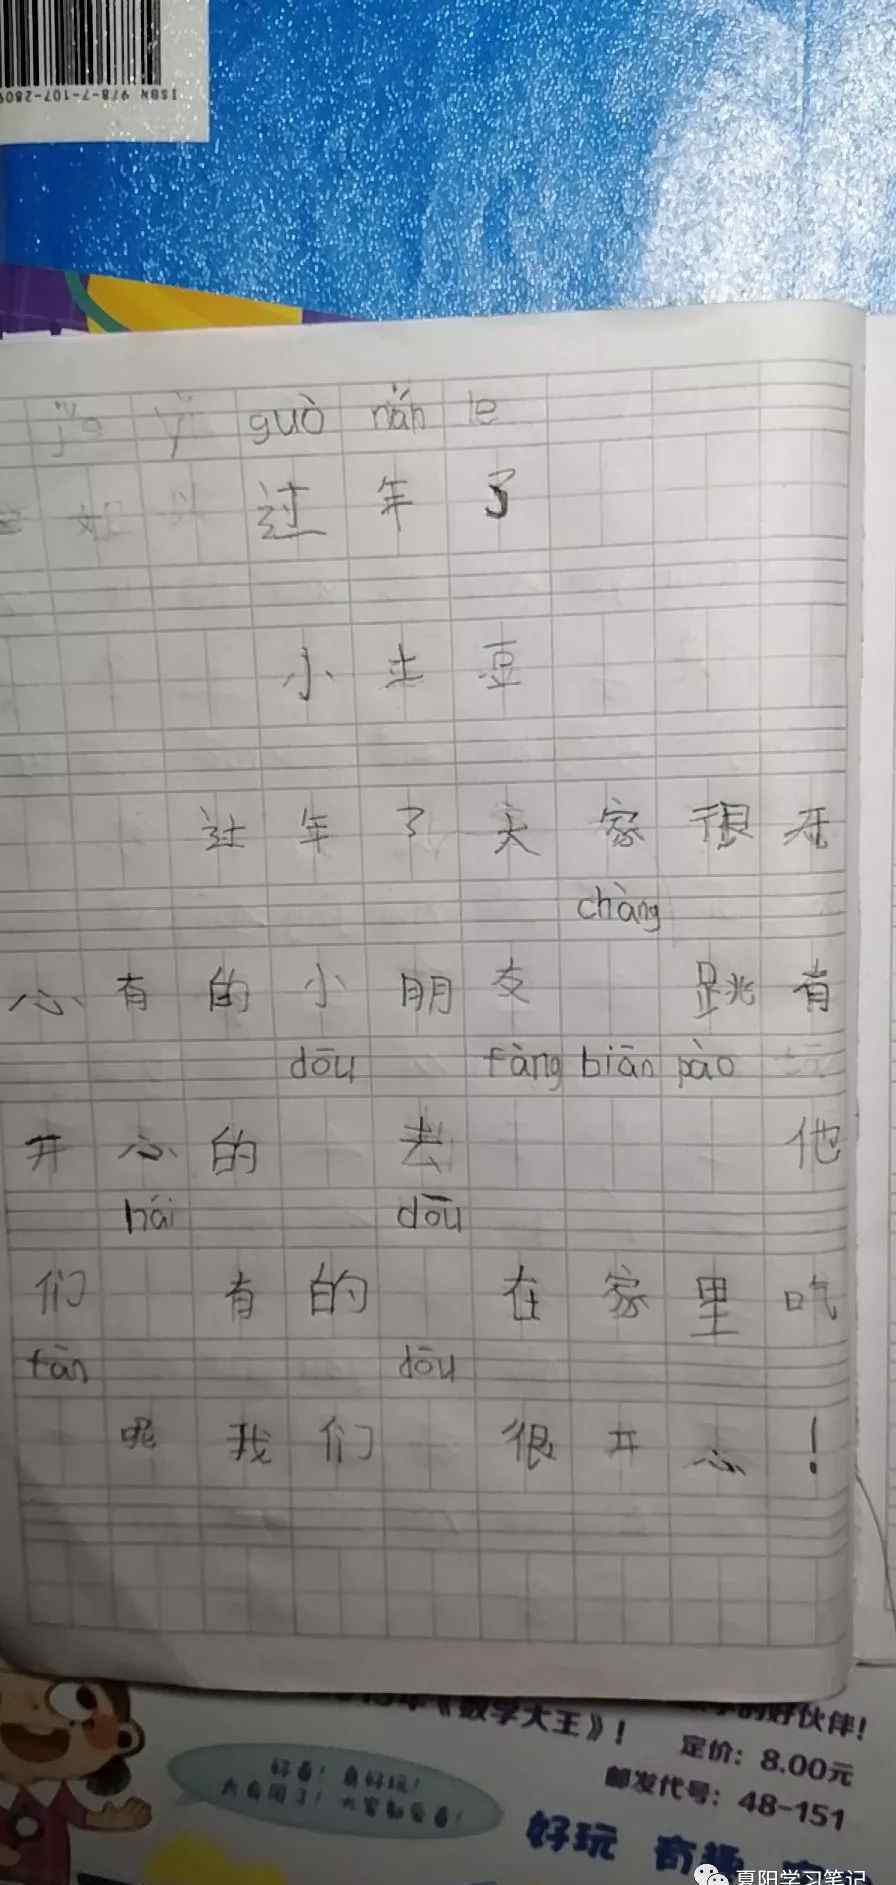 ISBN 978-7-107-2809
guò nián le
过年了
小土豆
过年了天家很开
chàng
心有的小朋友 跳有
dōu fàng biān pào
开心的 去 他
hái dōu
们 有的 在家里吃
fàn dōu
呢我们 很开心!
《数学大王》!
的好伙伴!
定价: 8.00元
邮发代号: 48-151
好看! 真好玩!
大家都爱看!
好玩 有趣
夏阳学习笔记